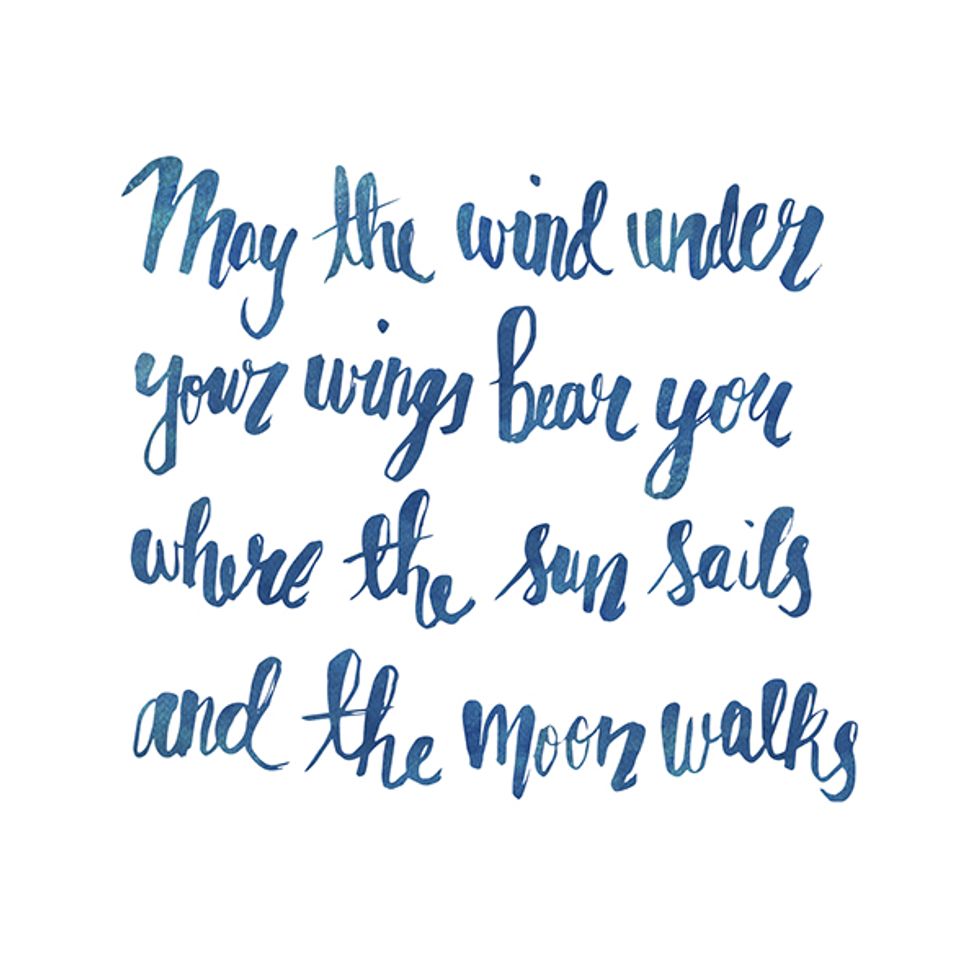 May the wind under
your wings bear you
where the sun sails
and the moon walks